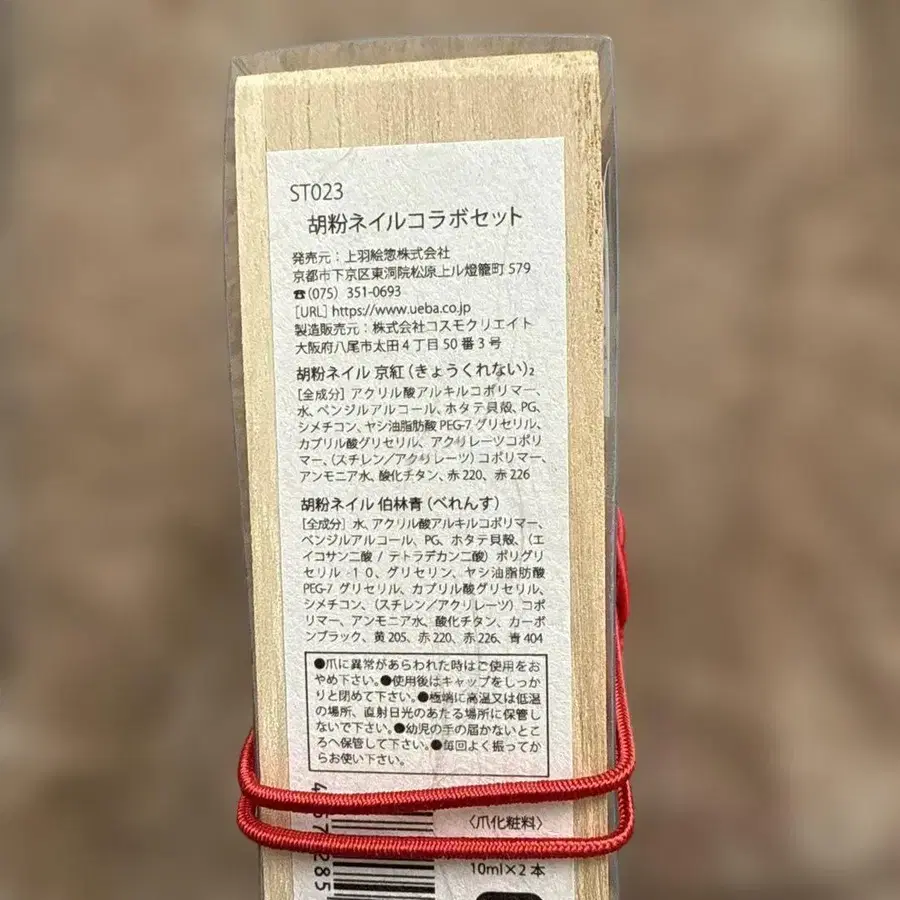 ST023
胡粉ネイルコラボセット
発売元：上羽絵惣株式会社
京都市下京区東洞院松原上ル燈籠町 579
☎(075) 351-0693
[URL] https://www.ueba.co.jp
製造販売元：株式会社コスモクリエイト
大阪府八尾市太田4丁目50番3号
胡粉ネイル 京紅（きょうくれない）2
[全成分] アクリル酸アルキルコポリマー、
水、ベンジルアルコール、ホタテ貝殻、PG、
シメチコン、ヤシ油脂肪酸 PEG-7 グリセリル、
カプリル酸グリセリル、アクリレーツコポリ
マー、（スチレン／アクリレーツ）コポリマー、
アンモニア水、酸化チタン、赤 220、赤 226
胡粉ネイル 伯林青（べれんす）
[全成分] 水、アクリル酸アルキルコポリマー、
ベンジルアルコール、PG、ホタテ貝殻、（エ
イコサン二酸 / テトラデカン二酸）ポリグリ
セリル-10、グリセリン、ヤシ油脂肪酸
PEG-7 グリセリル、カプリル酸グリセリル、
シメチコン、（スチレン／アクリレーツ）コポ
リマー、アンモニア水、酸化チタン、カーボ
ンブラック、黄 205、赤 220、赤 226、青 404
●爪に異常があらわれた時はご使用をお
やめ下さい。●使用後はキャップをしっか
りと閉めて下さい。●極端に高温又は低温
の場所、直射日光のあたる場所に保管し
ないで下さい。●幼児の手の届かないとこ
ろへ保管して下さい。●毎回よく振ってか
らお使い下さい。
〈爪化粧料〉
10ml×2本